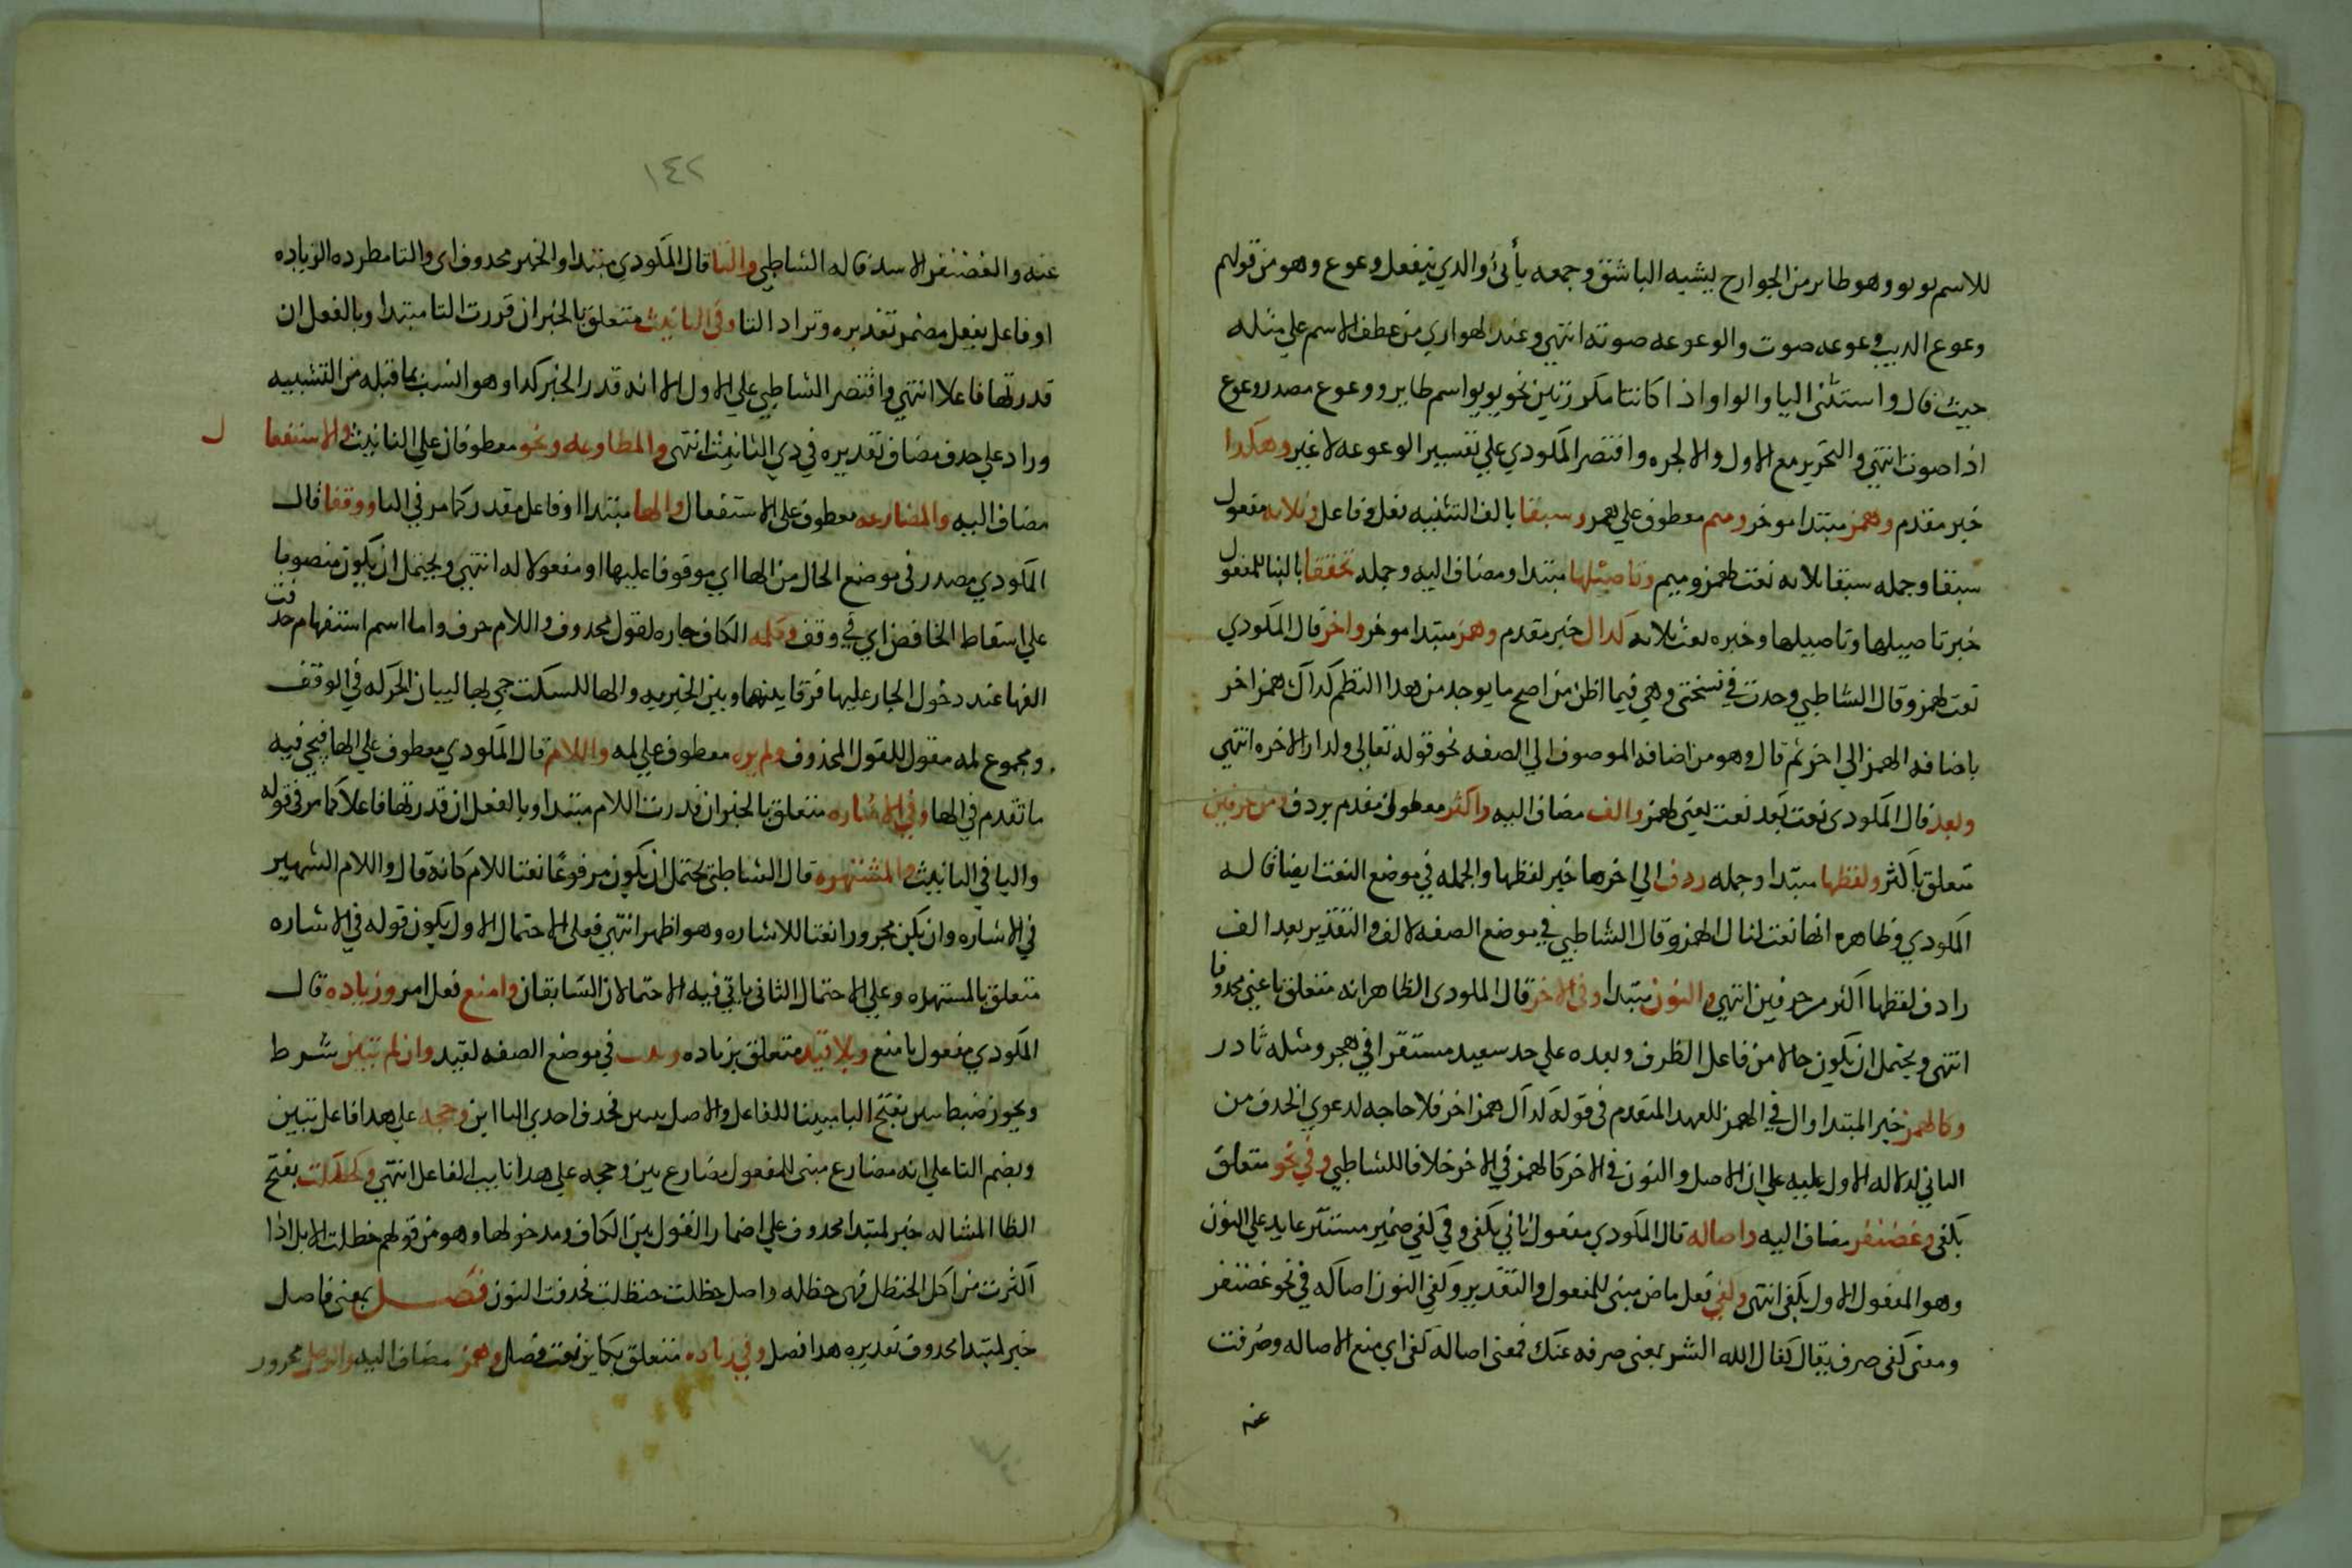 للاسم لولو وهو طاىر من الجوارح يشبه الباشق وجمعه يأيئ والدي يفعل وعوع وهو من قولهم
وعوع الديب وعوعه صوت والوعوعه صوته انتهي وعند الهواري من عطف الاسم علي مثله
حيث قال واستثني اليا والواو اذا كانتا مكررتين نحو يويو اسم طاير ووعوع مصدر وعوع
اذا صوت انتهي والتحرير مع الاول والالجره واقتصر المكودي علي تفسير الوعوعه لا غير وهكدا
خبر مقدم وهمز مبتدا موخر وميم معطوف علي همز وسبقا بالف التثنيه فعل وفاعل وثلاثه مفعول
سبقا وجمله سبقا ثلاثه نعت لهمز وميم وتاصيلها مبتدا ومضاف اليه وجمله تحققا بالبنا للمفعول
خبر تاصيلها وتاصيلها وخبره نعت ثلاثه كدال خبر مقدم وهمز مبتدا موخر واخر قال المكودي
نعت لهمز وقال الشاطبي وجدت في نسختي وهي فيما اظن من اصح ما يوجد من هدا النظم كداك همز اخر
باضافه الهمز الي اخر ثم قال وهو من اضافه الموصوف الي الصفه نحو قوله تعالي ولدار الاخره انتهي
وبعد قال المكودي نعت بعد نعت يعني لهمز والف مضاف اليه واكثر معطوف مقدم بردف ومن حرفين
متعلق باكثر ولفظها مبتدا وجمله ردف الي اخرها خبر لفظها والجمله في موضع النعت ايضا قاله
المكودي وظاهره انها نعت ثالث لهمز وقال الشاطبي في موضع الصفه لالف والتقدير بعد الف
رادف لفظها اكثر من حرفين انتهي والنون مبتدا وفي الاخر قال المكودي الظاهر انه متعلق باعني محدوفا
انتهي ويحتمل ان يكون حالا من فاعل الظرف وبعده علي حد سعيد مستقرا في هجر ومثله نادر
وكالهمز خبر المبتدا وال في الهمز للعهد المتقدم في قوله كداك همز اخر فلا حاجه لدعوي الحدف من
الثاني لدلاله الاول عليه علي ان الاصل والنون في الاخر كالهمز في الاخر خلافا للشاطبي وفي نحو متعلق
بكفي وغضنفر مضاف اليه واصاله قال المكودي مفعول ثاني بكفي وفي كفي ضمير مستتر عايد علي النون
وهو المفعول الاول بكفي انتهي وكفي فعل ماض مبني للمفعول والتقدير وكفي النون اصاله في نحو غضنفر
ومعني كفي صرف يقال كفاك الله الشر بمعني صرفه عنك فمعني اصاله كفي اي منع الاصاله وصرفت
عنه
١٤٢
عنه والغضنفر الاسد قاله الشاطبي والتا قال المكودي مبتدا والخبر محدوف اي والتا مطرده الزياده
او فاعل بفعل مضمر تقديره وتزاد التا وفي التانيث متعلق بالخبر ان قررت التا مبتدا وبالفعل ان
قدرتها فاعلا انتهي واقتصر الشاطبي علي الاول الا انه قدر الخبر كدا وهو انسب بما قبله من التشبيه
وزاد علي حدف مضاف تقديره في دي التانيث انتهي والمطاوعه ونحو معطوفان علي التانيث والاستفعال
مضاف اليه والمضارعه معطوف علي الاستفعال والها مبتدا او فاعل مقدر كما مر في التا ووقفا قال
المكودي مصدر في موضع الحال من الها اي موقوفا عليها او مفعولا له انتهي ويحتمل ان يكون منصوبا
علي اسقاط الخافض اي في وقف وكلمه الكاف جاره لقول محدوف واللام حرف وما اسم استفهام حدفت
الفها عند دخول الجار عليها فرقا بينها وبين الخبريه والها للسكت جي بها لبيان الحركه في الوقف
ومجموع لمه مقول للقول المحذوف ولم يره معطوف علي لمه واللام قال المكودي معطوف علي الها فيجي فيه
ما تقدم في الها وفي الاشاره متعلق بالخبر ان قدرت اللام مبتدا وبالفعل ان قدرتها فاعلا كما مر في قوله
واليا في التانيث والمشتهره قال الشاطبي يحتمل ان يكون مرفوعا نعتا للام كانه قال واللام الشهير
في الاشاره وان يكن مجرورا نعتا للاشاره وهو اظهر انتهي فعلي الاحتمال الاول يكون قوله في الاشاره
متعلق بالمشتهره وعلي الاحتمال الثاني ياتي فيه الاحتمالان السابقان وامنع فعل امر وزياده قال
المكودي مفعول بامنع وبلا قيد متعلق بزياده وثبت في موضع الصفه لقيد وان لم تبين شرط
ويجوز ضبط تبين بفتح التا مبينا للفاعل والاصل تتبين فحدف احدي التااين وحجه علي هدا فاعل تبين
وبضم التا علي انه مضارع مبني للمفعول مضارع بين وحجه علي هدا نايب الفاعل انتهي وكحظلت بفتح
الظا المشاله خبر لمبتدا محدوف علي اضمار القول بين الكاف ومدخولها وهو من قولهم حظلت الابل اذا
اكثرت من اكل الحنظل فهي حظله واصل حظلت حنظلت فحدفت النون فصل بمعني فاصل
خبر لمبتدا محدوف تقديره هدا فصل وفي زياده متعلق بكاين نعت فصل وهمز مضاف اليه والوصل مجرور